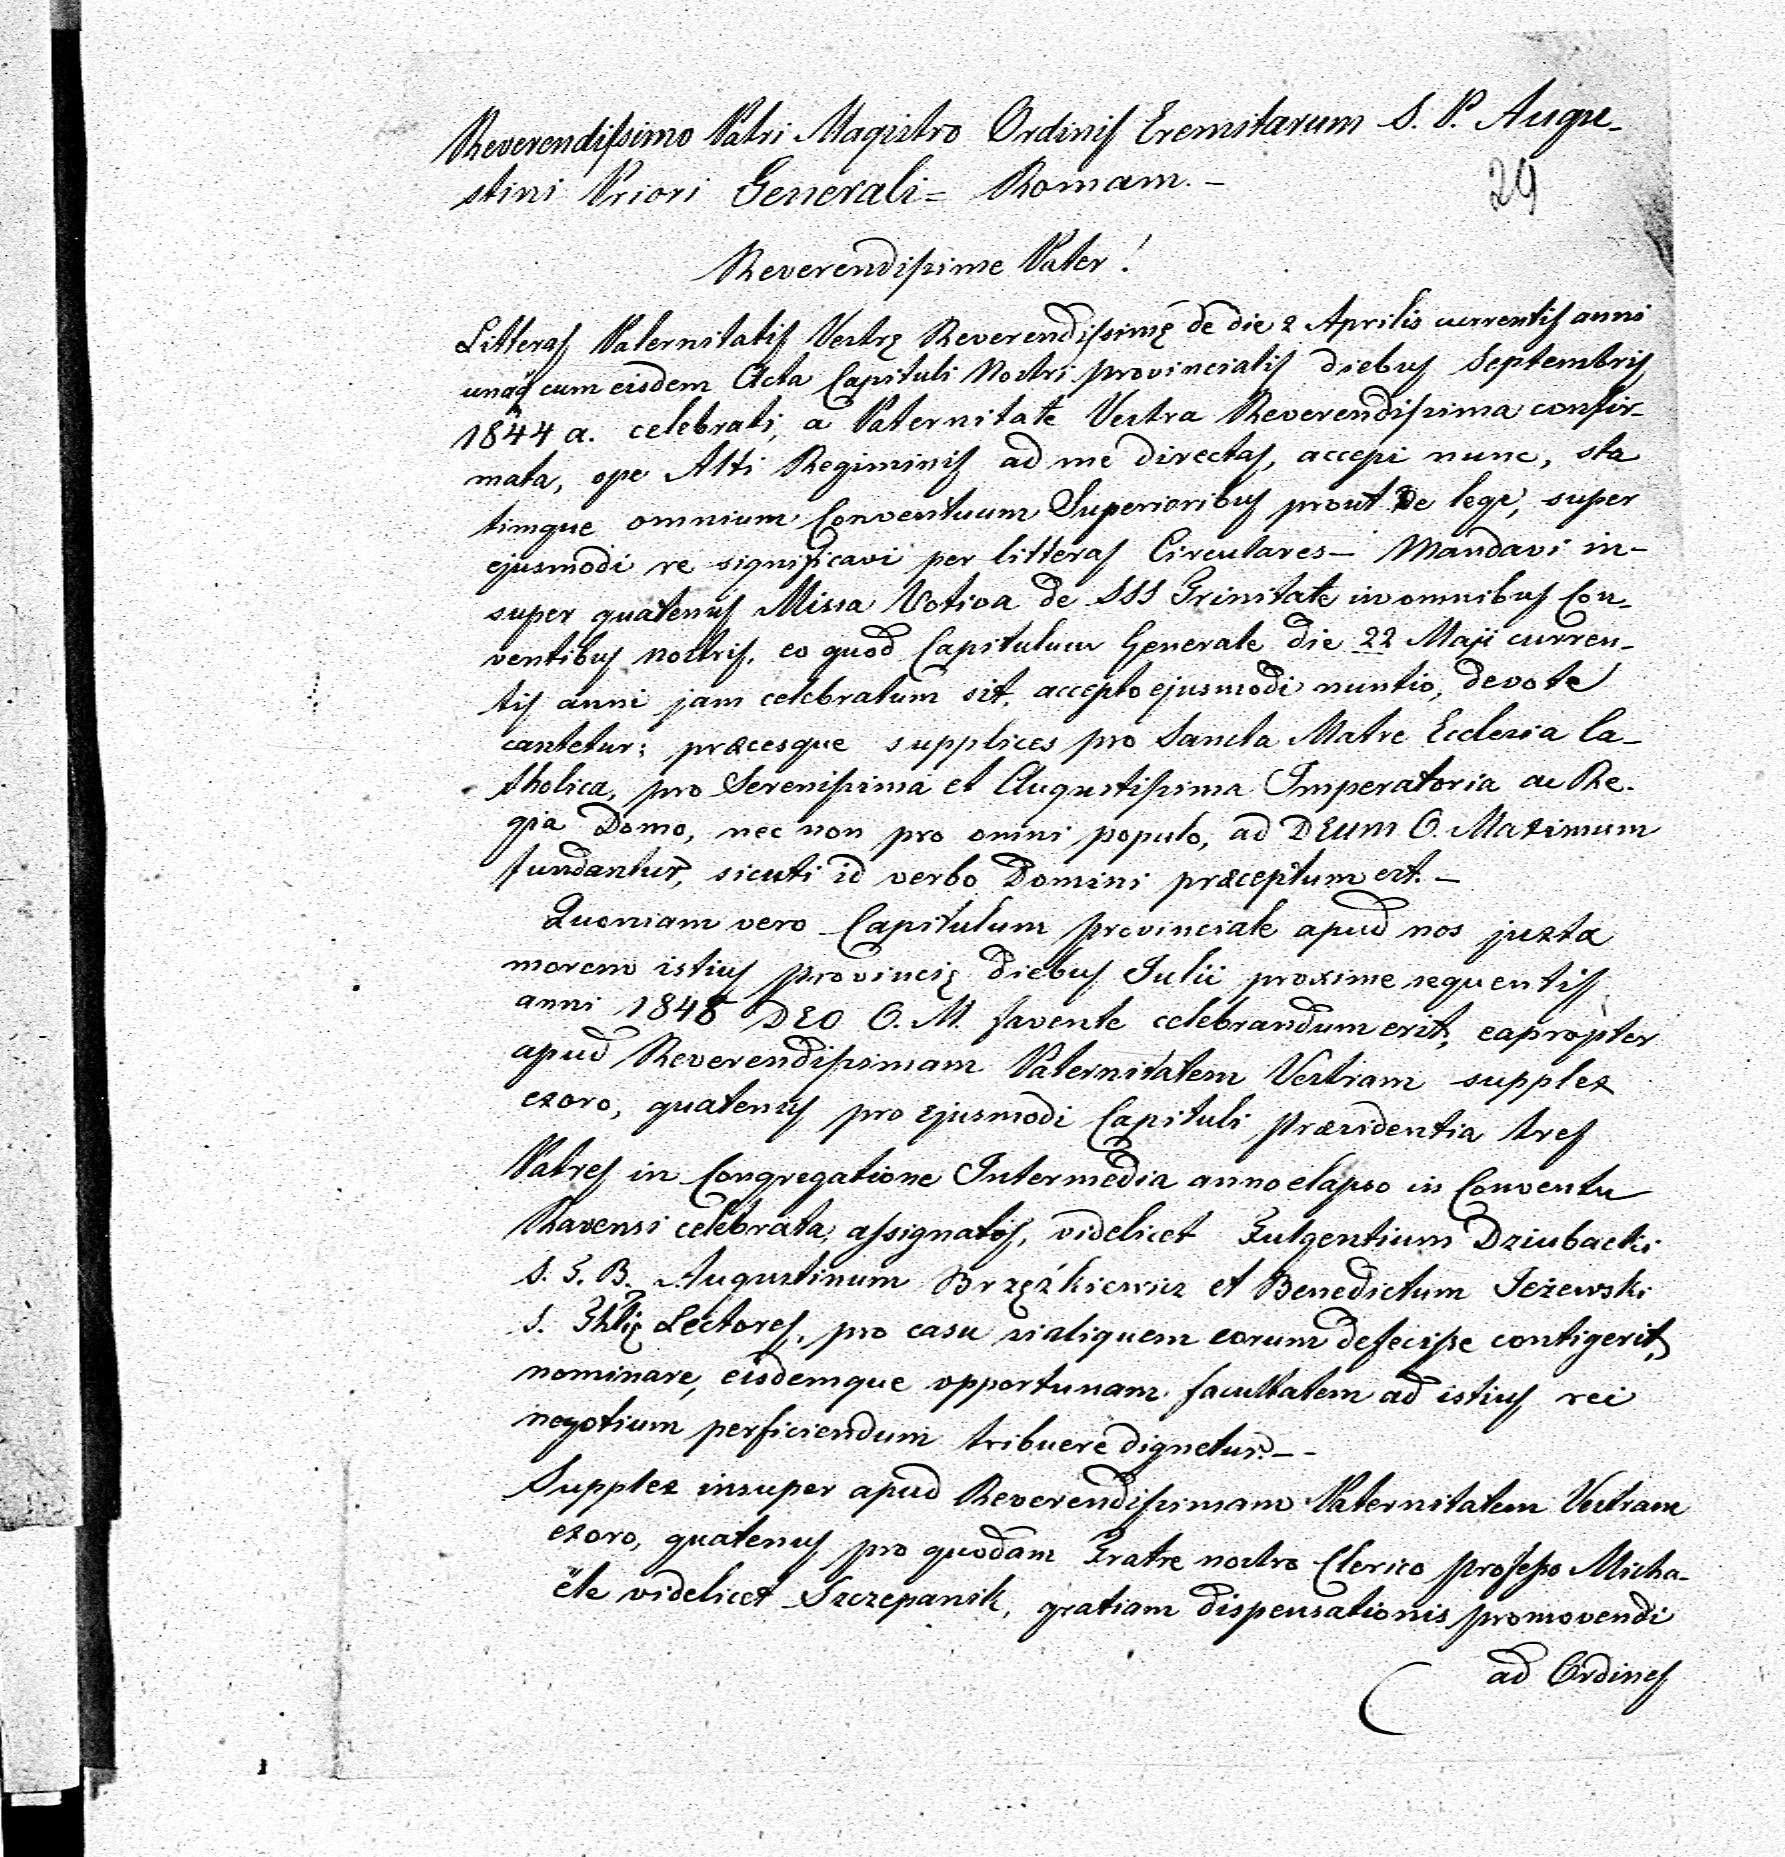 Reverendissimo Patri Magistro Ordinis Eremitarum S. P. Augu-
stini Priori Generali = Romam. -
29
Reverendissime Pater!
Litteras Paternitatis Vestrę Reverendissimę de die 2 Aprilis currentis anni
unaq cum eisdem Acta Capituli Nostri provincialis diebus Septembris
1844 a. celebrati, a Paternitate Vestra Reverendissima confir-
mata, ope Alti Regiminis ad me directas, accepi nunc, sta
timque omnium Conventuum Superioribus prout de lege, super
ejusmodi re significavi per litteras Circulares - Mandavi in-
super quatenus Missa Votiva de SSS Trinitate in omnibus Con-
ventibus nostris, eo quod Capitulum Generale die 22 Maji curren-
tis anni jam celebratum sit, accepto ejusmodi nuntio, devote
cantetur; præcesque supplices pro Sancta Matre Ecclesia Ca-
tholica, pro Serenissima et Augustissima Imperatoria ac Re-
gia Domo, nec non pro omni populo, ad DEUM O. Maximum
fundantur, sicuti id verbo Domini præceptum est. -
Quoniam vero Capitulum provinciale apud nos juxta
morem istius provincię diebus Julii proxime sequentis
anni 1848 DEO O. M. favente celebrandum erit, eapropter
apud Reverendissimam Paternitatem Vestram supplex
exoro, quatenus pro ejusmodi Capituli Præsidentia tres
Patres in Congregatione Intermedia anno elapso in Conventu
Ravensi celebrata, assignatos, videlicet Fulgentium Dziubacki
S. T. B. Augustinum Brzęźkiewicz et Benedictum Jeżewski
S. Lectores, pro casu si aliquem eorum defecisse contigerit,
nominare, eisdemque opportunam facultatem ad istius rei
negotium perficiendum tribuere dignetur. - -
Supplex insuper apud Reverendissimam Paternitatem Vestram
exoro, quatenus pro quodam Fratre nostro Clerico professo Micha-
ële videlicet Szczepanik, gratiam dispensationis promovendi
ad Ordines